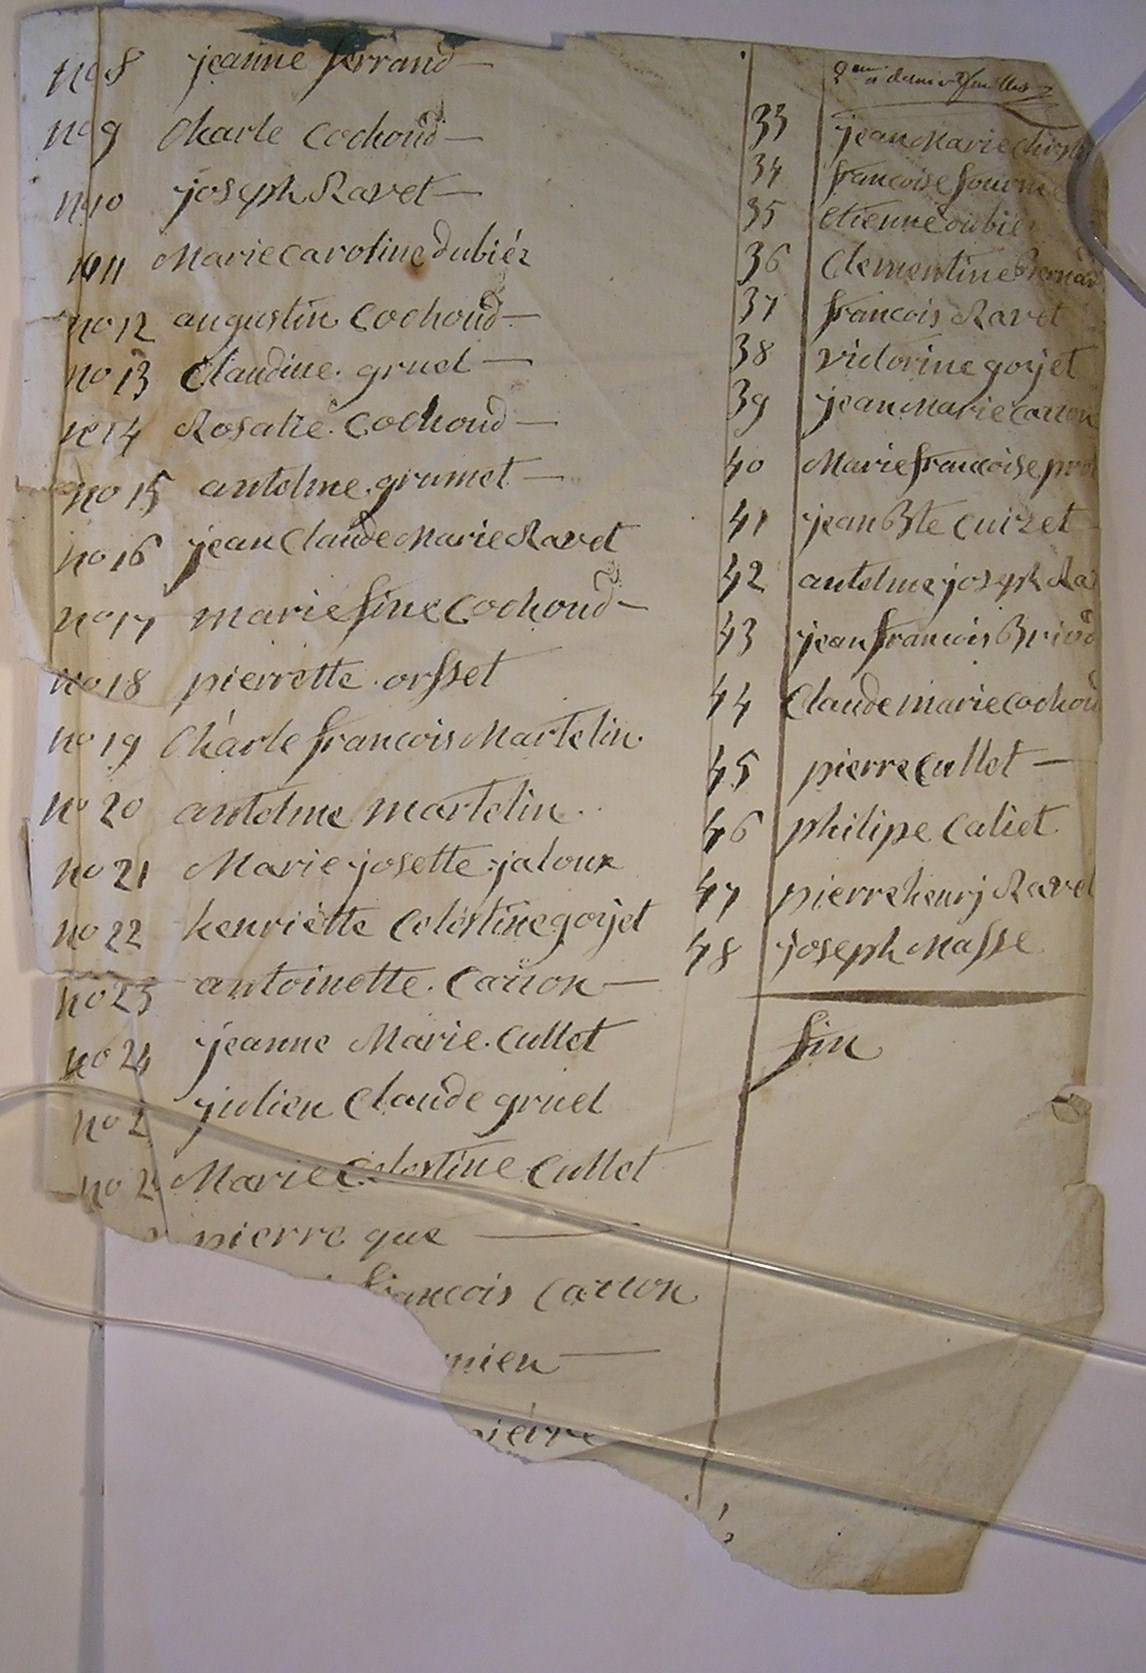 no 8 jeanne ferrand
no 9 Charle Cochoud
no 10 joseph Ravet
no 11 Marie caroline dubiéz
no 12 augustin Cochoud
no 13 Claudine. gruel
no 14 Rosalie. Cochoud
no 15 antelme. grumet
no 16 jean Claude Marie Ravet
no 17 marie fine Cochoud
no 18 pierrette. orsset
no 19 Charle francois Martelin
no 20 antelme martelin.
no 21 Marie josette. jaloux
no 22 henriette Celestine goyet
no 23 antoinette. Carron
no 24 jeanne Marie. Cullet
no 2 julien Claude gruel
no 2 Marie Celestine Cullet
pierre gue
francois Carron
mien
pierre
33 jean Marie
34 francoise
35 etienne dubie
36 Clementine Bernar
37 francois Ravet
38 victorine goyet
39 jean Marie Carron
40 Marie francoise
41 jean Bte Cuizet
42 antelme joseph Ra
43 jean francois Briod
44 Claude marie Cochoud
45 pierre Cullet
46 philipe Caliet
47 pierre henrj Ravet
48 joseph Masse
fin